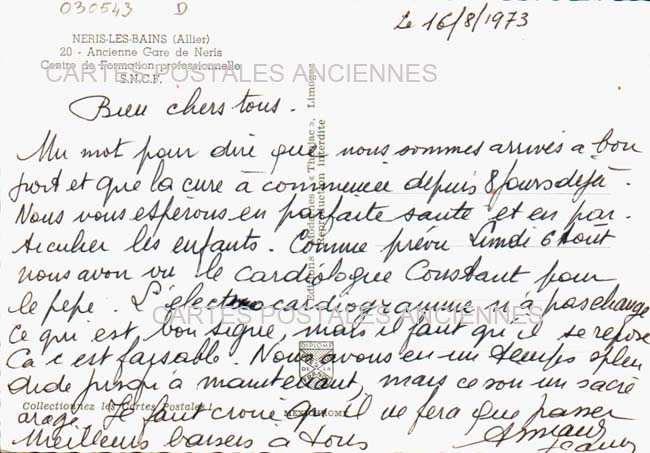 030543 D
Le 16/8/1973
NERIS-LES-BAINS (Allier)
20 - Ancienne Gare de Neris
Centre de Formation professionnelle
S.N.C.F.
CARTES POSTALES ANCIENNES
Bien chers tous.
Un mot pour dire que nous sommes arrivés à bon
port et que la cure à commencée depuis 8 jours déjà.
Nous vous espérons en parfaite santé et en par-
ticulier les enfants. Comme prévu Lundi 6 Août
nous avon vu le cardiologue Constant pour
le pépé. L'électrocardiogramme n'à pas changé
CARTES POSTALES ANCIENNES
ce qui est bon signe, mais il faut qu'il se repose
Ca c'est faisable. Nous avons eu un temps splen
dide jusqu'à maintenant, mais ce soir un sacré
Collectionnez les Cartes Postales !
orage. Il faut croire qu'il ne fera que passer
Meilleurs baisers à tous
Armand
Editions Modernes « Théojac », Limoges
Reproduction interdite
DIPLOME
DE LA